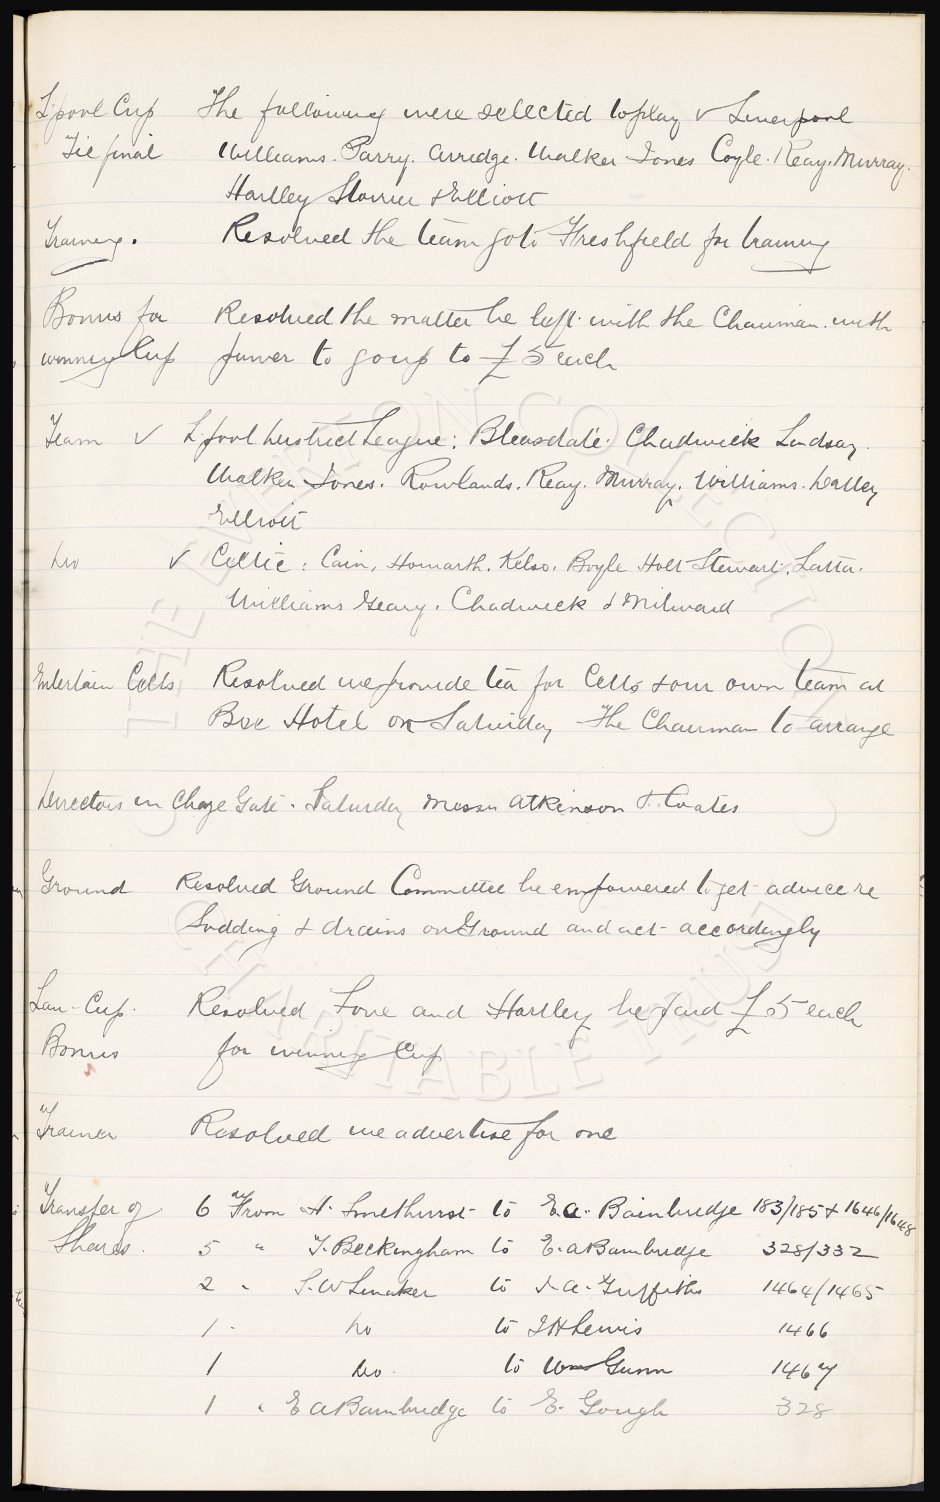 L'pool Cup The following were selected to play v Liverpool
Tie final Williams. Parry. Arridge. Walker Jones Coyle. Reay. Murray.
Hartley Storrier & Elliott
Training. Resolved the team go to Freshfield for training
Bonus for Resolved the matter be left with the Chairman with
winning Cup power to go up to £5 each
Team v L'pool District League: Bleasdale. Chadwick Lindsay.
Walker Jones. Rowlands. Reay. Murray. Williams.
Elliott
Do v Celtic: Cain, Howarth. Kelso. Boyle Holt Stewart. Latta.
Williams Geary. Chadwick & Milward
Entertain Celts Resolved we provide tea for Celts & our own team at
Bee Hotel on Saturday The Chairman to arrange
Directors in Chge Gate. Saturday Messrs Atkinson & Coates
Ground Resolved Ground Committee be empowered to get advice re
Sodding & drains on Ground and act accordingly
Lan. Cup. Resolved Love and Hartley be paid £5 each
Bonus for winning Cup
Trainer Resolved we advertise for one
Transfer of 6 From H. Smethurst to E.A. Bainbridge 183/185 & 1646/1648
Shares. 5 " T. Beckingham to E. A Bainbridge 328/332
2 " S. W Linaker to J. A. Griffiths 1464/1465
1 " Do to J H Lewis 1466
1 Do. to Wm Gunn 1467
1 " E A Bainbridge to E. Gough 328
THE EVERTON COLLECTION
CHARITABLE TRUST